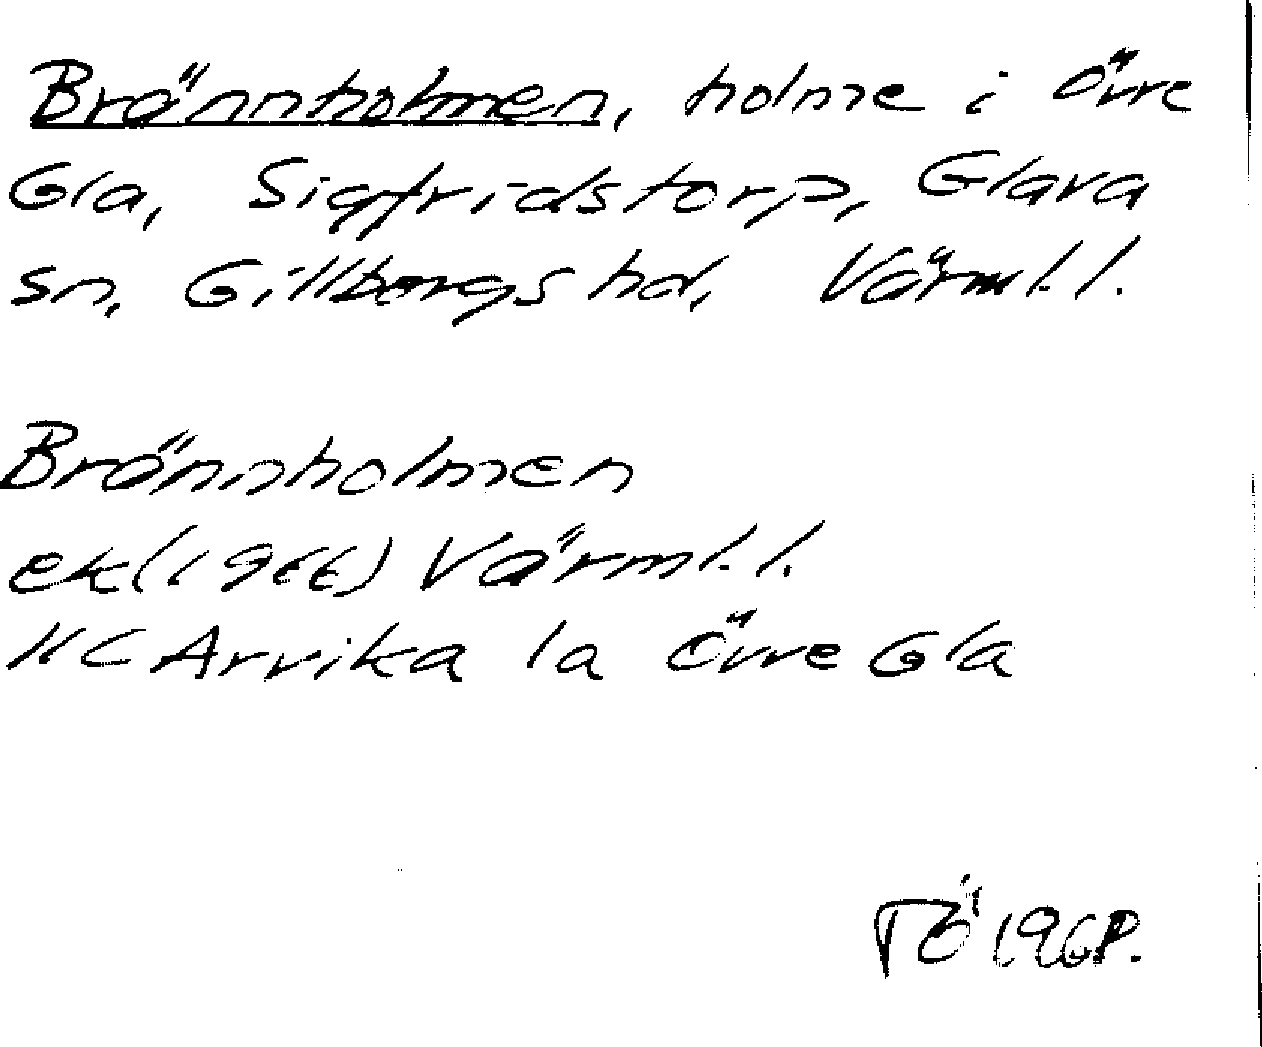 Brännholmen, holme i Övre
Gla, Sigfridstorp, Glava
sn, Gillbergs hd, Värml. l.
Brännholmen
ek(1966) Värml. l.
11C Arvika la Övre Gla
TÖ 1968.